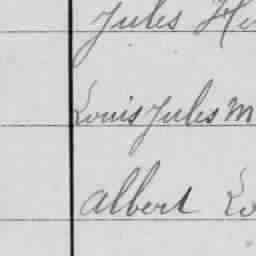 Jules He
Louis Jules M
Albert Lo